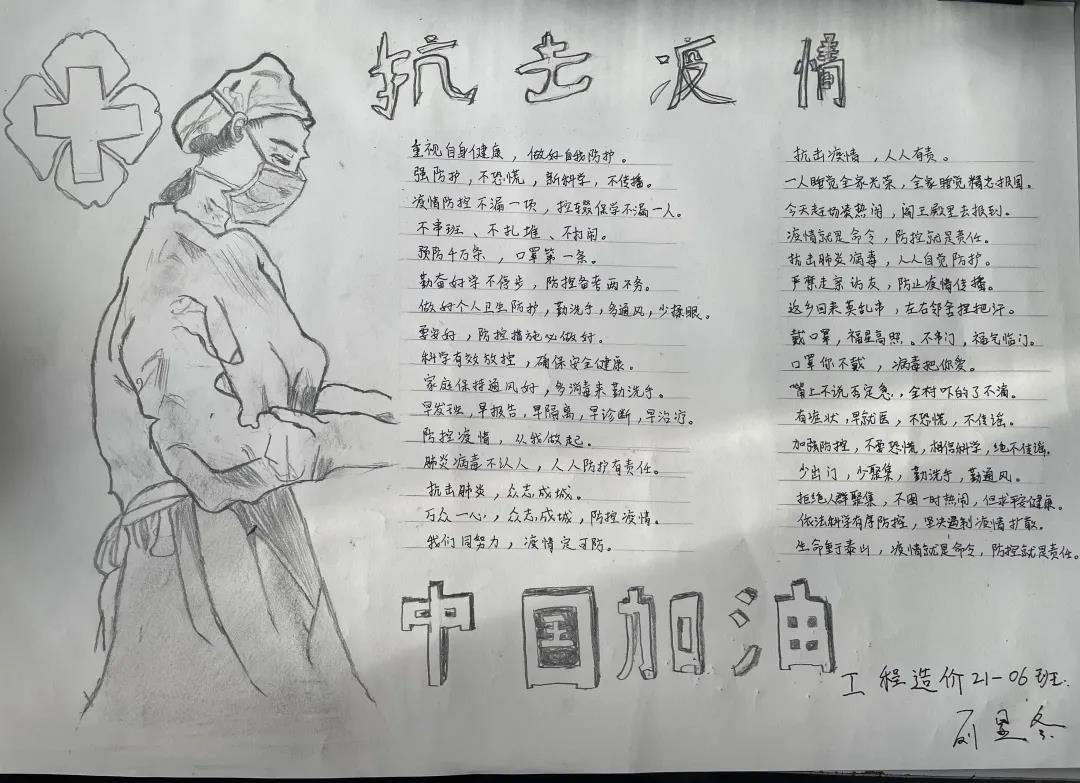 抗击疫情
重视自身健康，做好自我防护。
强防护，不恐慌，新科学，不传播。
疫情防控不漏一项，控辍保学不漏一人。
不串班、不扎堆、不打闹。
预防千万条，口罩第一条。
勤奋好学不停步，防控备考两不务。
做好个人卫生防护，勤洗手，多通风，少揉眼。
要安好，防控措施必做好。
科学有效放控，确保安全健康。
家庭保持通风好，多消毒来勤洗手。
早发现，早报告，早隔离，早诊断，早治疗。
防控疫情，从我做起。
肺炎病毒不认人，人人防护有责任。
抗击肺炎，众志成城。
万众一心，众志成城，防控疫情。
我们同努力，疫情定可防。
抗击疫情，人人有责。
一人睡觉全家光荣，全家睡觉精忠报国。
今天赶场凑热闹，阎王殿里去报到。
疫情就是命令，防控就是责任。
抗击肺炎病毒，人人自觉防护。
严禁走亲访友，防止疫情传播。
返乡回来莫乱串，左右邻舍捏把汗。
戴口罩，福星高照。不串门，福气临门。
口罩你不戴，病毒把你爱。
嘴上不说，全村吓的了不滴。
有症状，早就医，不恐慌，不传谣。
加强防控，不要恐慌，相信科学，绝不传谣。
少出门，少聚集，勤洗手，勤通风。
拒绝人群聚集，不图一时热闹，但求平安健康。
依法科学有序防控，坚决遏制疫情扩散。
生命重于泰山，疫情就是命令，防控就是责任。
中国加油
工程造价21-06班